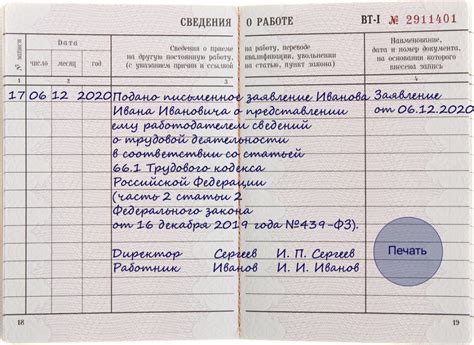 СВЕДЕНИЯ О РАБОТЕ
ВТ-I № 2911401
№ записи
Дата
число месяц год
Сведения о приеме на работу, переводе
на другую постоянную работу, квалификации, увольнении
(с указанием причин и ссылкой на статью, пункт закона)
Наименование,
дата и номер документа,
на основании которого
внесена запись
1 2 3 4
17 06 12 2020 Подано письменное заявление Иванова Заявление
Ивана Ивановича о представлении от 06.12.2020
ему работодателем сведений
о трудовой деятельности
в соответствии со статьей
66.1 Трудового кодекса
Российской Федерации
(часть 2 статьи 2
Федерального закона
от 16 декабря 2019 года №439-ФЗ).
Директор Сергеев И. П. Сергеев
Работник Иванов И. И. Иванов
Печать
18 19